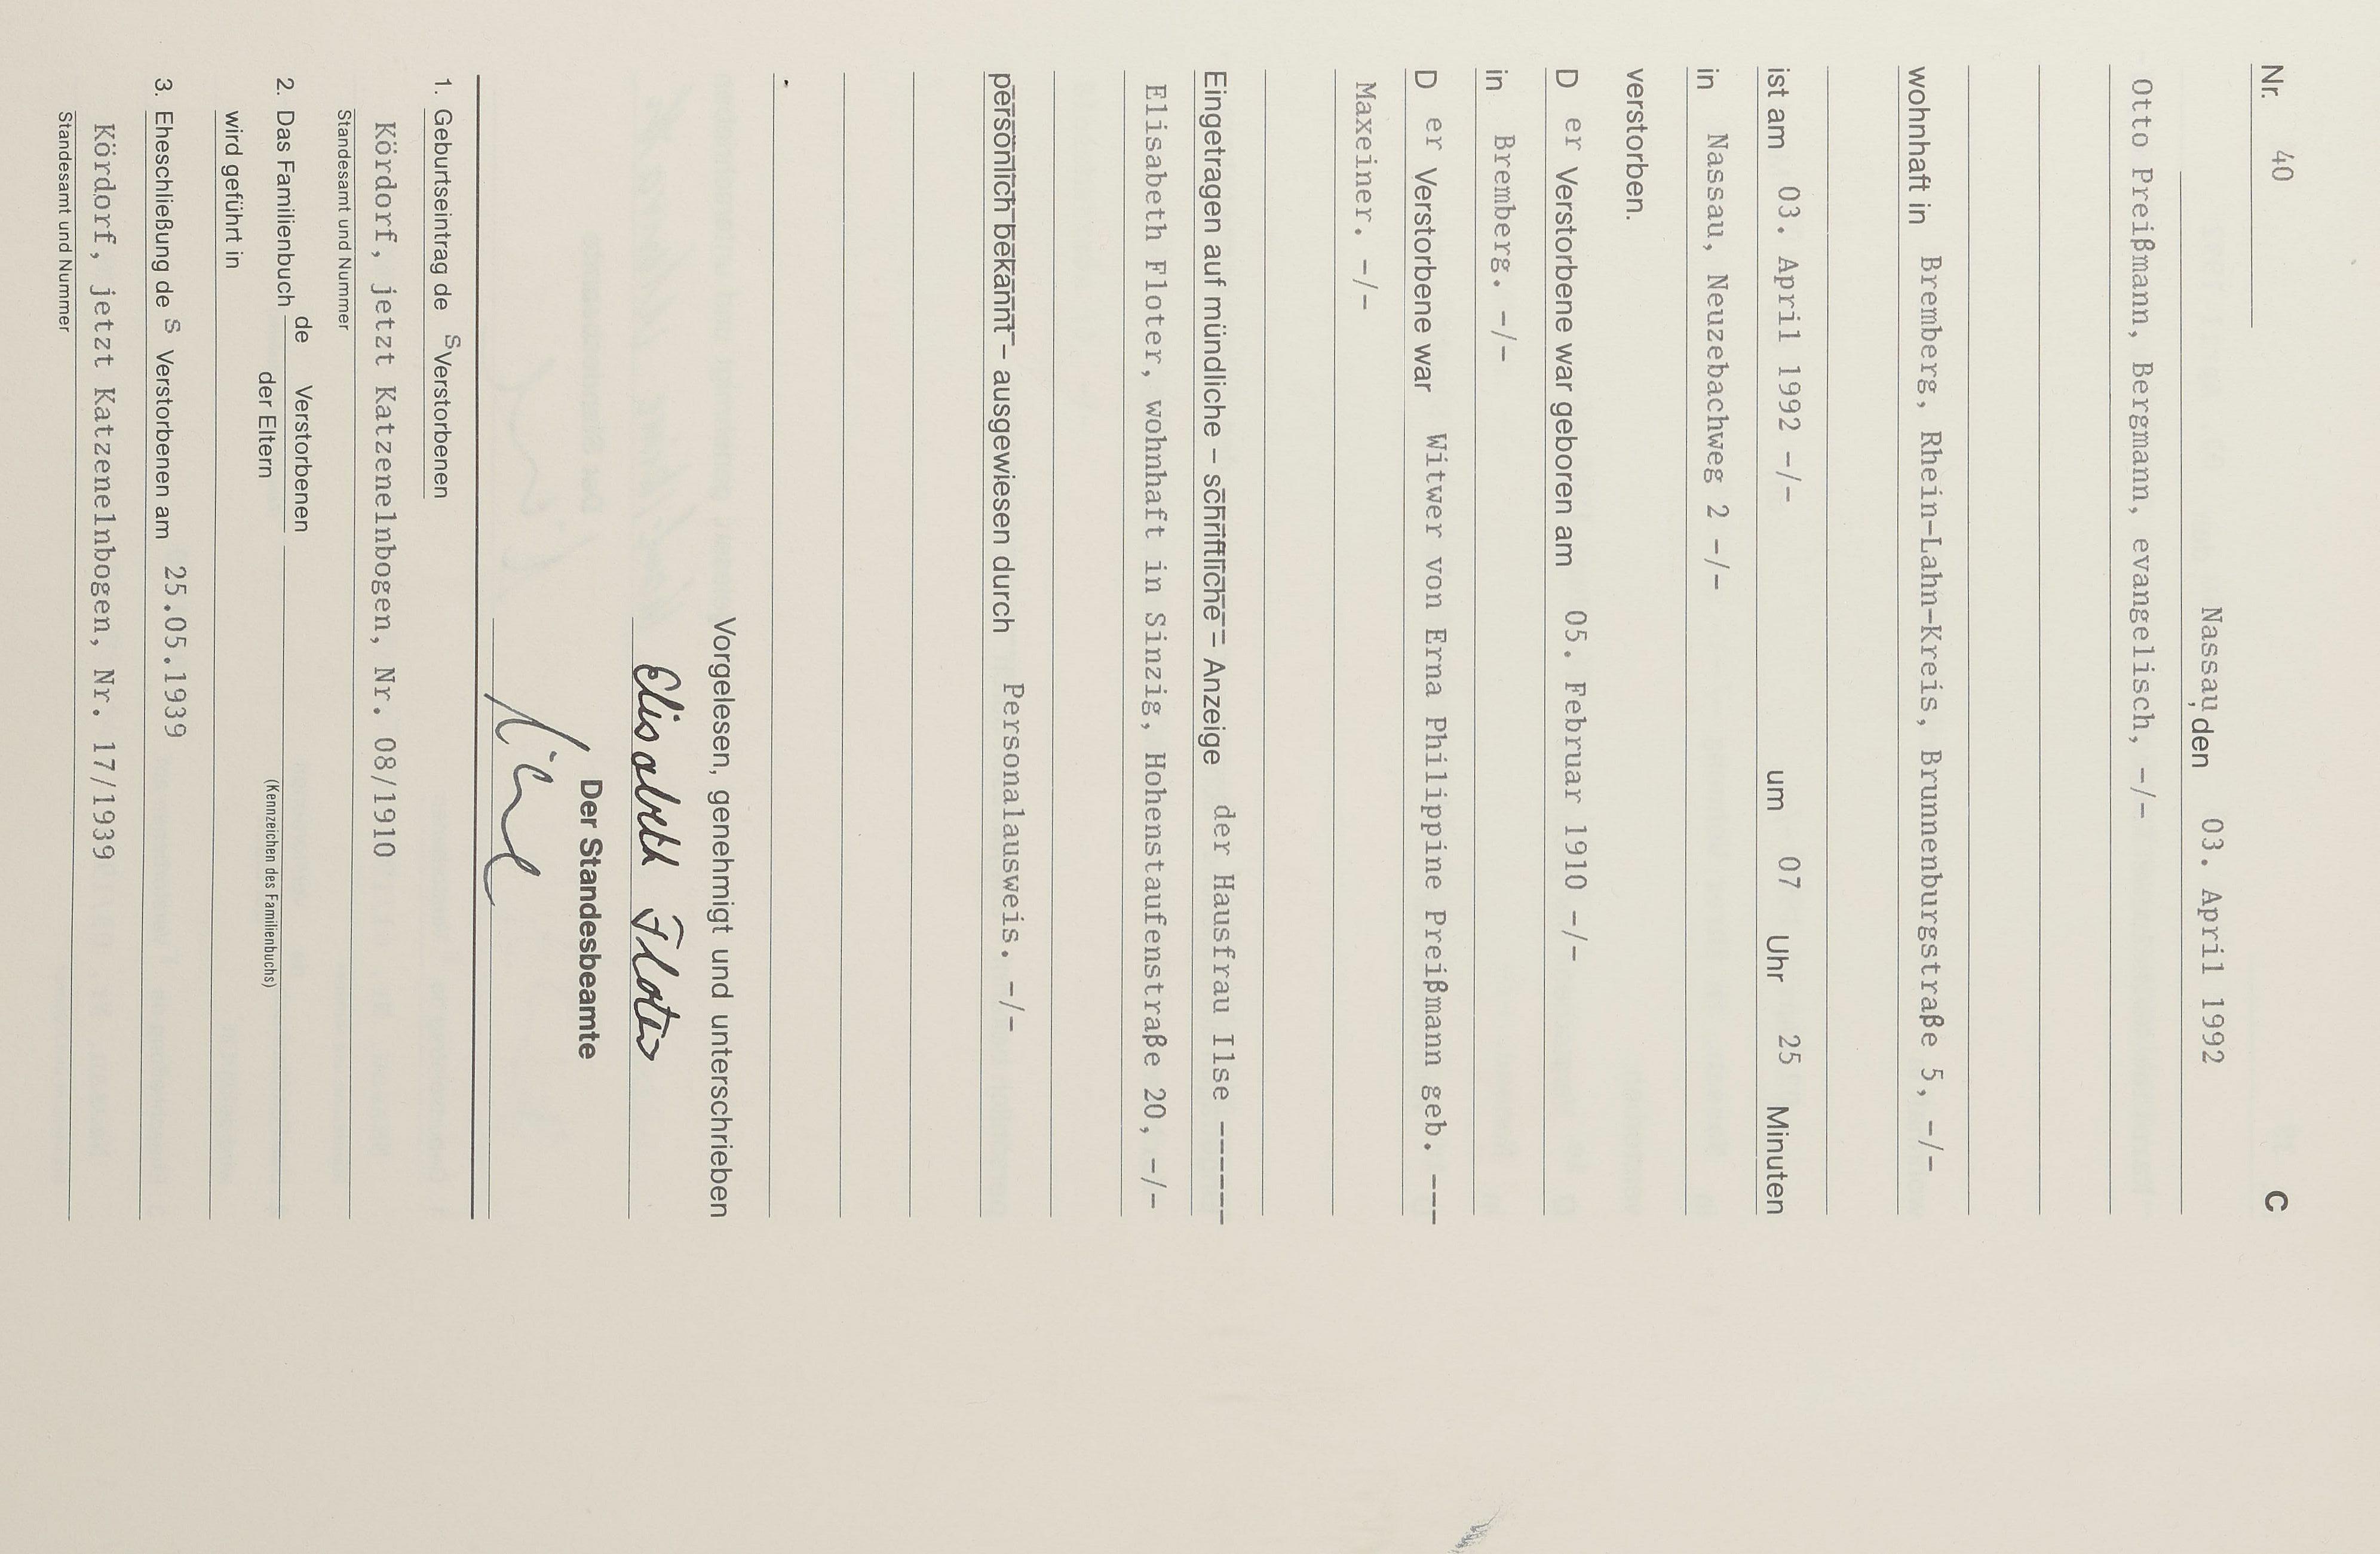 Nr. 40 C
Nassau, den 03. April 1992
Otto Preißmann, Bergmann, evangelisch, -/-
wohnhaft in Bremberg, Rhein-Lahn-Kreis, Brunnenburgstraße 5, -/-
ist am 03. April 1992 -/- um 07 Uhr 25 Minuten
in Nassau, Neuzebachweg 2 -/-
verstorben.
D er Verstorbene war geboren am 05. Februar 1910 -/-
in Bremberg. -/-
D er Verstorbene war Witwer von Erna Philippine Preißmann geb. ---
Maxeiner. -/-
Eingetragen auf mündliche – schriftliche – Anzeige der Hausfrau Ilse ------
Elisabeth Floter, wohnhaft in Sinzig, Hohenstaufenstraße 20, -/-
persönlich bekannt – ausgewiesen durch Personalausweis. -/-
Vorgelesen, genehmigt und unterschrieben
Elisabeth Floter
Der Standesbeamte
1. Geburtseintrag de s Verstorbenen
Kördorf, jetzt Katzenelnbogen, Nr. 08/1910
Standesamt und Nummer
2. Das Familienbuch de Verstorbenen
der Eltern
(Kennzeichen des Familienbuchs)
wird geführt in
3. Eheschließung de s Verstorbenen am 25.05.1939
Kördorf, jetzt Katzenelnbogen, Nr. 17/1939
Standesamt und Nummer